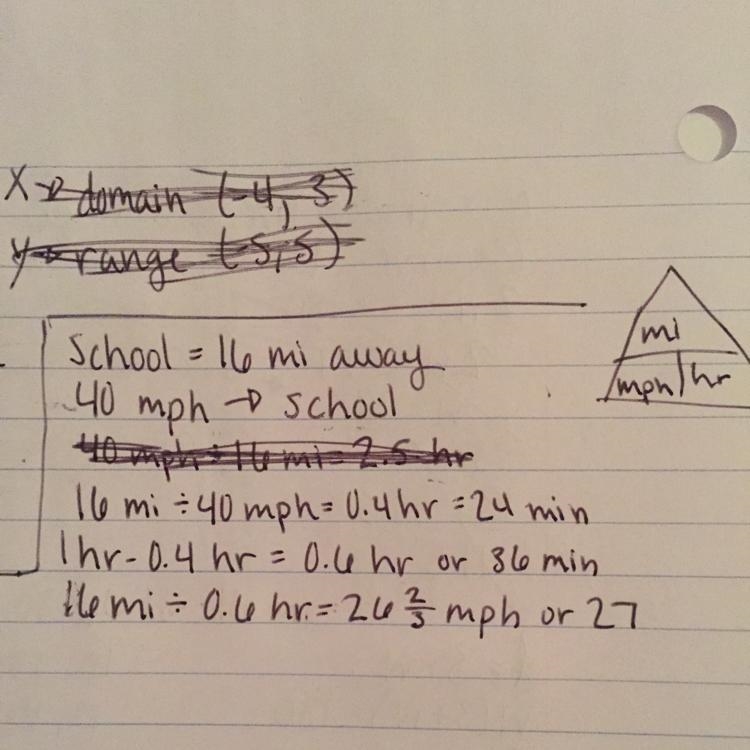 X → domain (-4, 3)
y → range (-5, 5)
School = 16 mi away
40 mph → school
40 mph ÷ 16 mi = 2.5 hr
16 mi ÷ 40 mph = 0.4 hr = 24 min
1 hr - 0.4 hr = 0.6 hr or 36 min
16 mi ÷ 0.6 hr = 26 2/3 mph or 27
mi
mph | hr